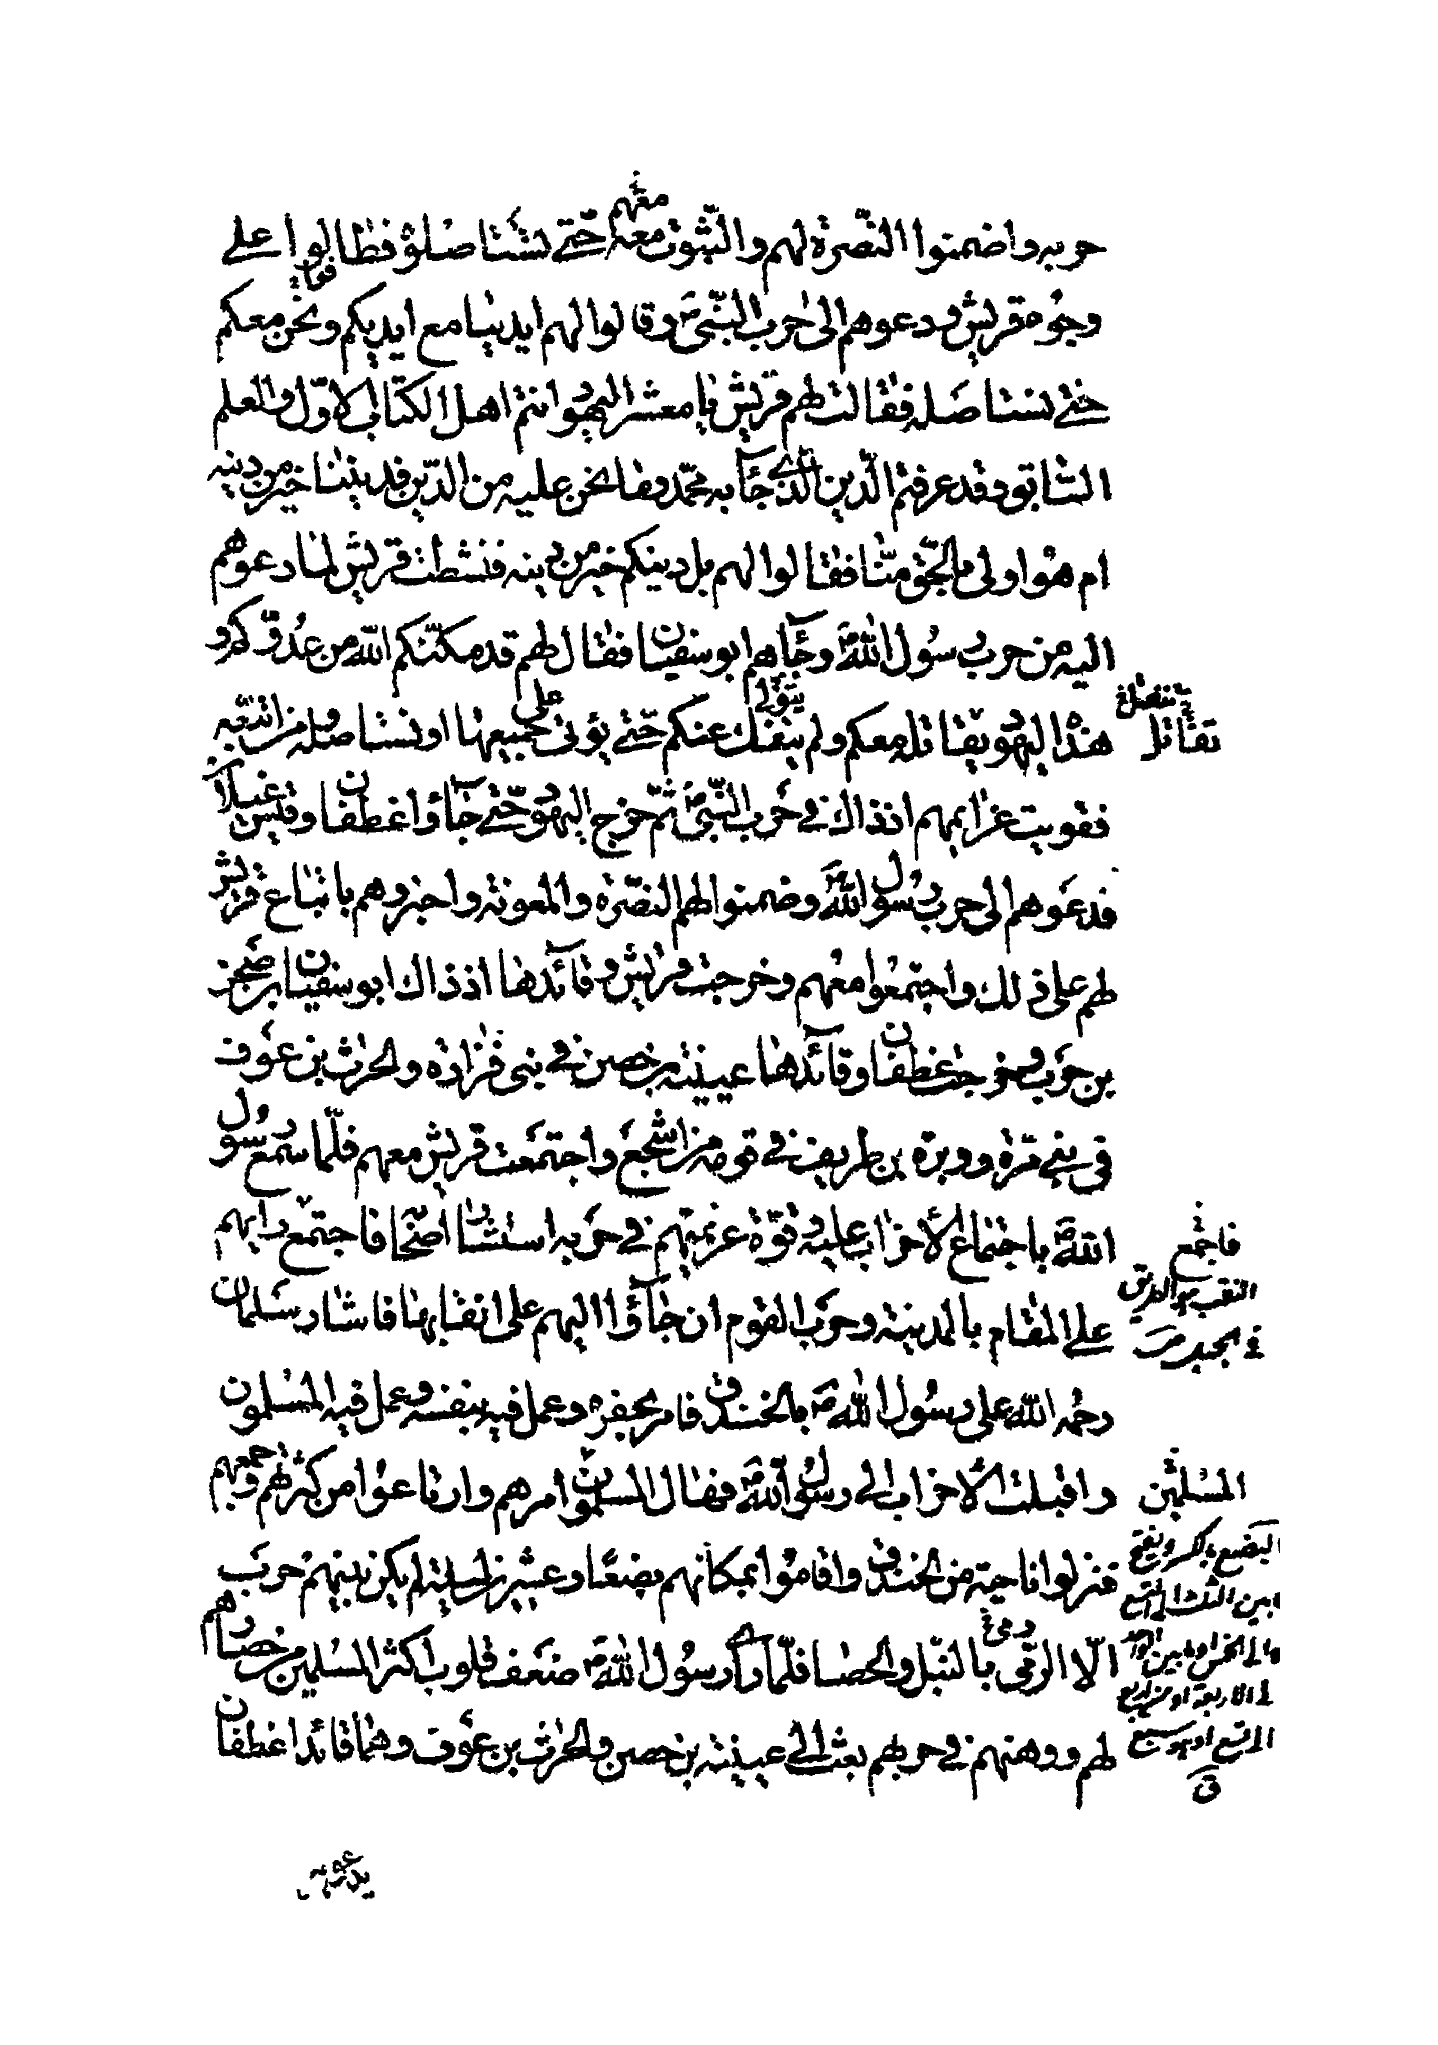 حربه واضمنوا النّصرة لهم والثّبوت معه حتّى نستاصلوه فطافوا على
معهم
وجوه قريش ودعوهم الى حرب النّبىّ ص وقالوا لهم ايدينا مع ايديكم ونحن معكم
حتى نستاصله فقالت لهم قريش يا معشر اليهود انتم اهل الكتاب الاوّل والعلم
السّابق وقد عرفتم الدّين الّذى جآء به محمّد وما نحن عليه من الدّين فديننا خير من دينه
ام هو اولى بالحّق منّا فقالوا لهم بل دينكم خير من دينه فنشطت قريش لما دعوهم
اليه من حرب رسول اللّه ص وجآءهم ابو سفيان فقال لهم قد مكّنكم اللّه من عدوّكم و
هذه اليهود تقاتله معكم ولم تنفك عنكم حتّى يؤتى على جميعها او نستاصله ومن اتّبعه
تقاتل
فقويت عزايمهم اذ ذاك فى حرب النّبىّ ص ثمّ خرج اليهود حتّى جآؤا غطفان وقيس غيلان
فدعوهم الى حرب رسول اللّه ص وضمنوا لهم النصّرة والمعونة واخبروهم باتباع قريش
لهم على ذلك واجتمعوا معهم وخرجت قريش وقآئدها اذ ذاك ابو سفيان صخر
بن حرب وخرجت غطفان وقآئدها عيينة بن حصن فى بنى فزارة والحرث بن عوف
فى بنى مرّة ووبرة بن طريف فى قومه من اشجع واجتمعت قريش معهم فلمّا سمع رسول
اللّه ص باجتماع الأحزاب عليه وقوّة عزيمتهم فى حربه استشار اصحابه فاجتمع رايهم
فاجمع
على المقام بالمدينة وحرب القوم ان جآؤا اليهم على انقابها فاشار سلمان
النقب هو الطريق
فى الجبل
رحمه اللّه على رسول اللّه ص بالخندق فامر بحفره وعمل فيه بنفسه وعمل فيه المسلمون
واقبلت الأحزاب الى رسول اللّه ص فهال المسلمون امرهم وارتاعوا من كثرتهم وجمعهم
المسلمين
فنزلوا ناحية من الخندق واقاموا بمكانهم بضعًا وعشرين ليلة لم يكن بينهم حرب
الّا الرّمى بالنّبل والحصا فلمّا رأى رسول اللّه ص ضعف قلوب اكثر المسلمين من حصارهم
لهم ووهنهم فى حربهم بعث الى عيينة بن حصن والحرث بن عوف وهما قائدا غطفان
البضع بالكسر ويفتح
ما بين الثلث الى التسع
او الى الخمس او ما بين الواحد
الى الاربعة او من اربع
الى تسع او هو سبع
ق
يدعوهم